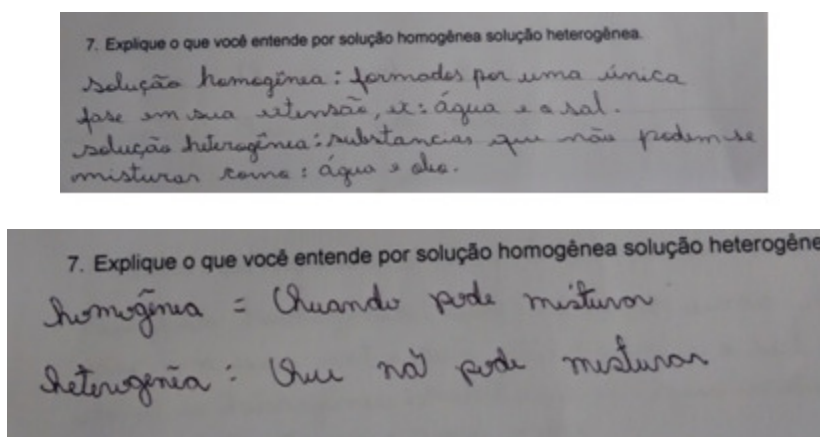 7. Explique o que você entende por solução homogênea solução heterogênea.
solução homogênea: formados por uma única
fase em sua extensão, ex: água e o sal.
solução heterogênea: substancias que não podem se
misturar como: água e oleo.
7. Explique o que você entende por solução homogênea solução heterogêne
homogênea = Quando pode misturar
heterogenêa: Que não pode misturar